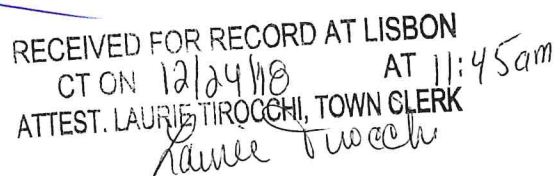 RECEIVED FOR RECORD AT LISBON
CT ON 12/24/18 AT 11:45am
ATTEST. LAURIE TIROCCHI, TOWN CLERK
Laurie Tirocchi